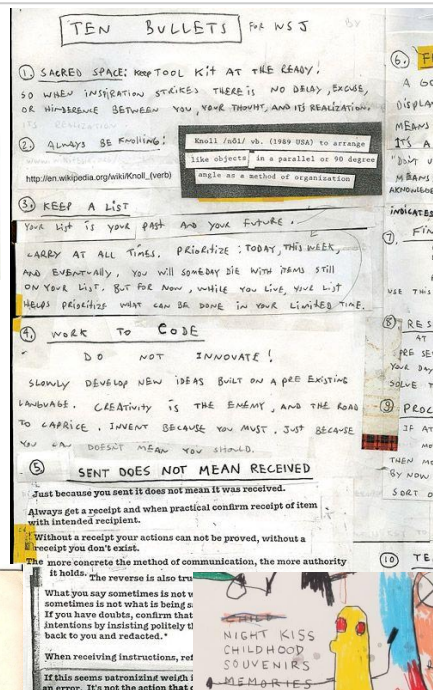 TEN BULLETS FOR WSJ
1. SACRED SPACE: KEEP TOOL KIT AT THE READY!
SO WHEN INSPIRATION STRIKES THERE IS NO DELAY, EXCUSE,
OR HINDERENCE BETWEEN YOU, YOUR THOUHT, AND ITS REALIZATION.
2. ALWAYS BE Knolling:
Knoll /nōl/ vb. (1989 USA) to arrange
like objects in a parallel or 90 degree
angle as a method of organization
http://en.wikipedia.org/wiki/Knoll_(verb)
3. KEEP A LIST
YOUR LIST IS YOUR PAST AND YOUR FUTURE.
CARRY AT ALL TIMES. PRIORITIZE: TODAY, THIS WEEK,
AND EVENTUALLY. YOU WILL SOMEDAY DIE WITH ITEMS STILL
ON YOUR LIST. BUT FOR NOW, WHILE YOU LIVE, YOUR LIST
HELPS PRIORITIZE WHAT CAN BE DONE IN YOUR LIMITED TIME.
4. WORK TO CODE
DO NOT INNOVATE!
SLOWLY DEVELOP NEW IDEAS BUILT ON A PRE EXISTING
LANGUAGE. CREATIVITY IS THE ENEMY, AND THE ROAD
TO CAPRICE. INVENT BECAUSE YOU MUST. JUST BECAUSE
YOU CAN DOESN'T MEAN YOU SHOULD.
5 SENT DOES NOT MEAN RECEIVED
Just because you sent it does not mean it was received.
Always get a receipt and when practical confirm receipt of item
with intended recipient.
Without a receipt your actions can not be proved, without a
receipt you don't exist.
The more concrete the method of communication, the more authority
it holds. The reverse is also tru
What you say sometimes is not w
sometimes is not what is being s
If you have doubts, confirm that
intentions by insisting politely th
back to you and redacted.*
When receiving instructions, ref
If this seems patronizing weigh i
an error. It's not the action that c
6. F
A GO
DISPLA
MEANS
ITS A
"DON'T U
MEANS
AKNOWLEDG
INDICATES
7. FIN
USE THIS
8 RES
AT
SPRE SE
YOUR DAY
SOLVE T
9 PROC
IF AT
MO
THEN MO
BY NOW
SORT O
10 TE
CHILD
NIGHT KISS
CHILDHOOD
SOUVENIRS
MEMORIES